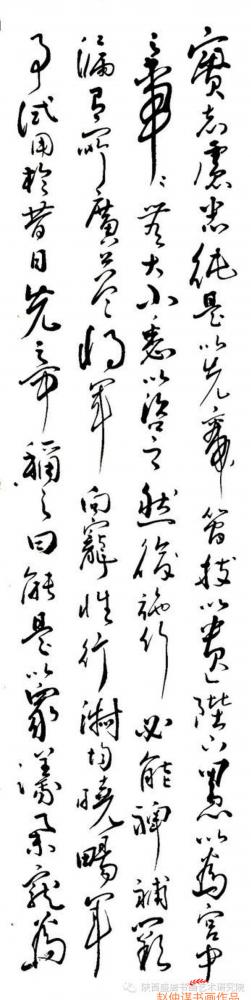 實志慮忠純是以先帝簡拔以遺陛下愚以為宮中
之事〻無大小悉以咨之然後施行必能裨補闕
漏有所廣益將軍向寵性行淑均曉暢軍
事試用於昔日先帝稱之曰能是以眾議舉寵為
陕西盛唐书画艺术研究院
赵仲谋书画作品